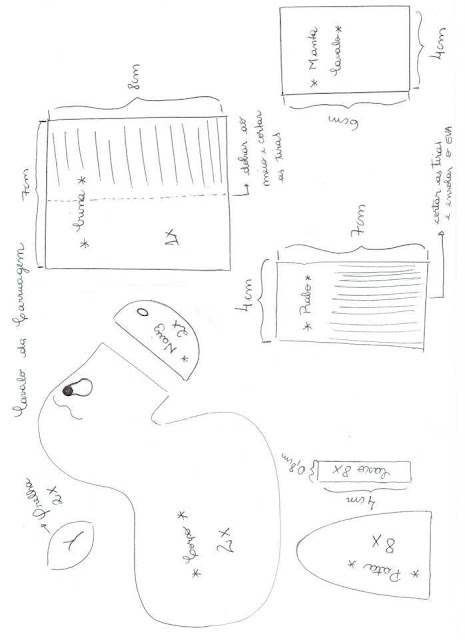 Cavalo da Carruagem
7cm
8cm
* Crina *
1x
→ dobrar ao
meio e cortar
as tiras
* Manta
Cavalo *
6cm
4cm
4cm
7cm
* Rabo *
→ cortar as tiras
e enrolar o EVA
* Nariz
2x
→ Orelha
2x
* Corpo *
2x
Casco 8x
0,8cm
4cm
* Pata *
8x